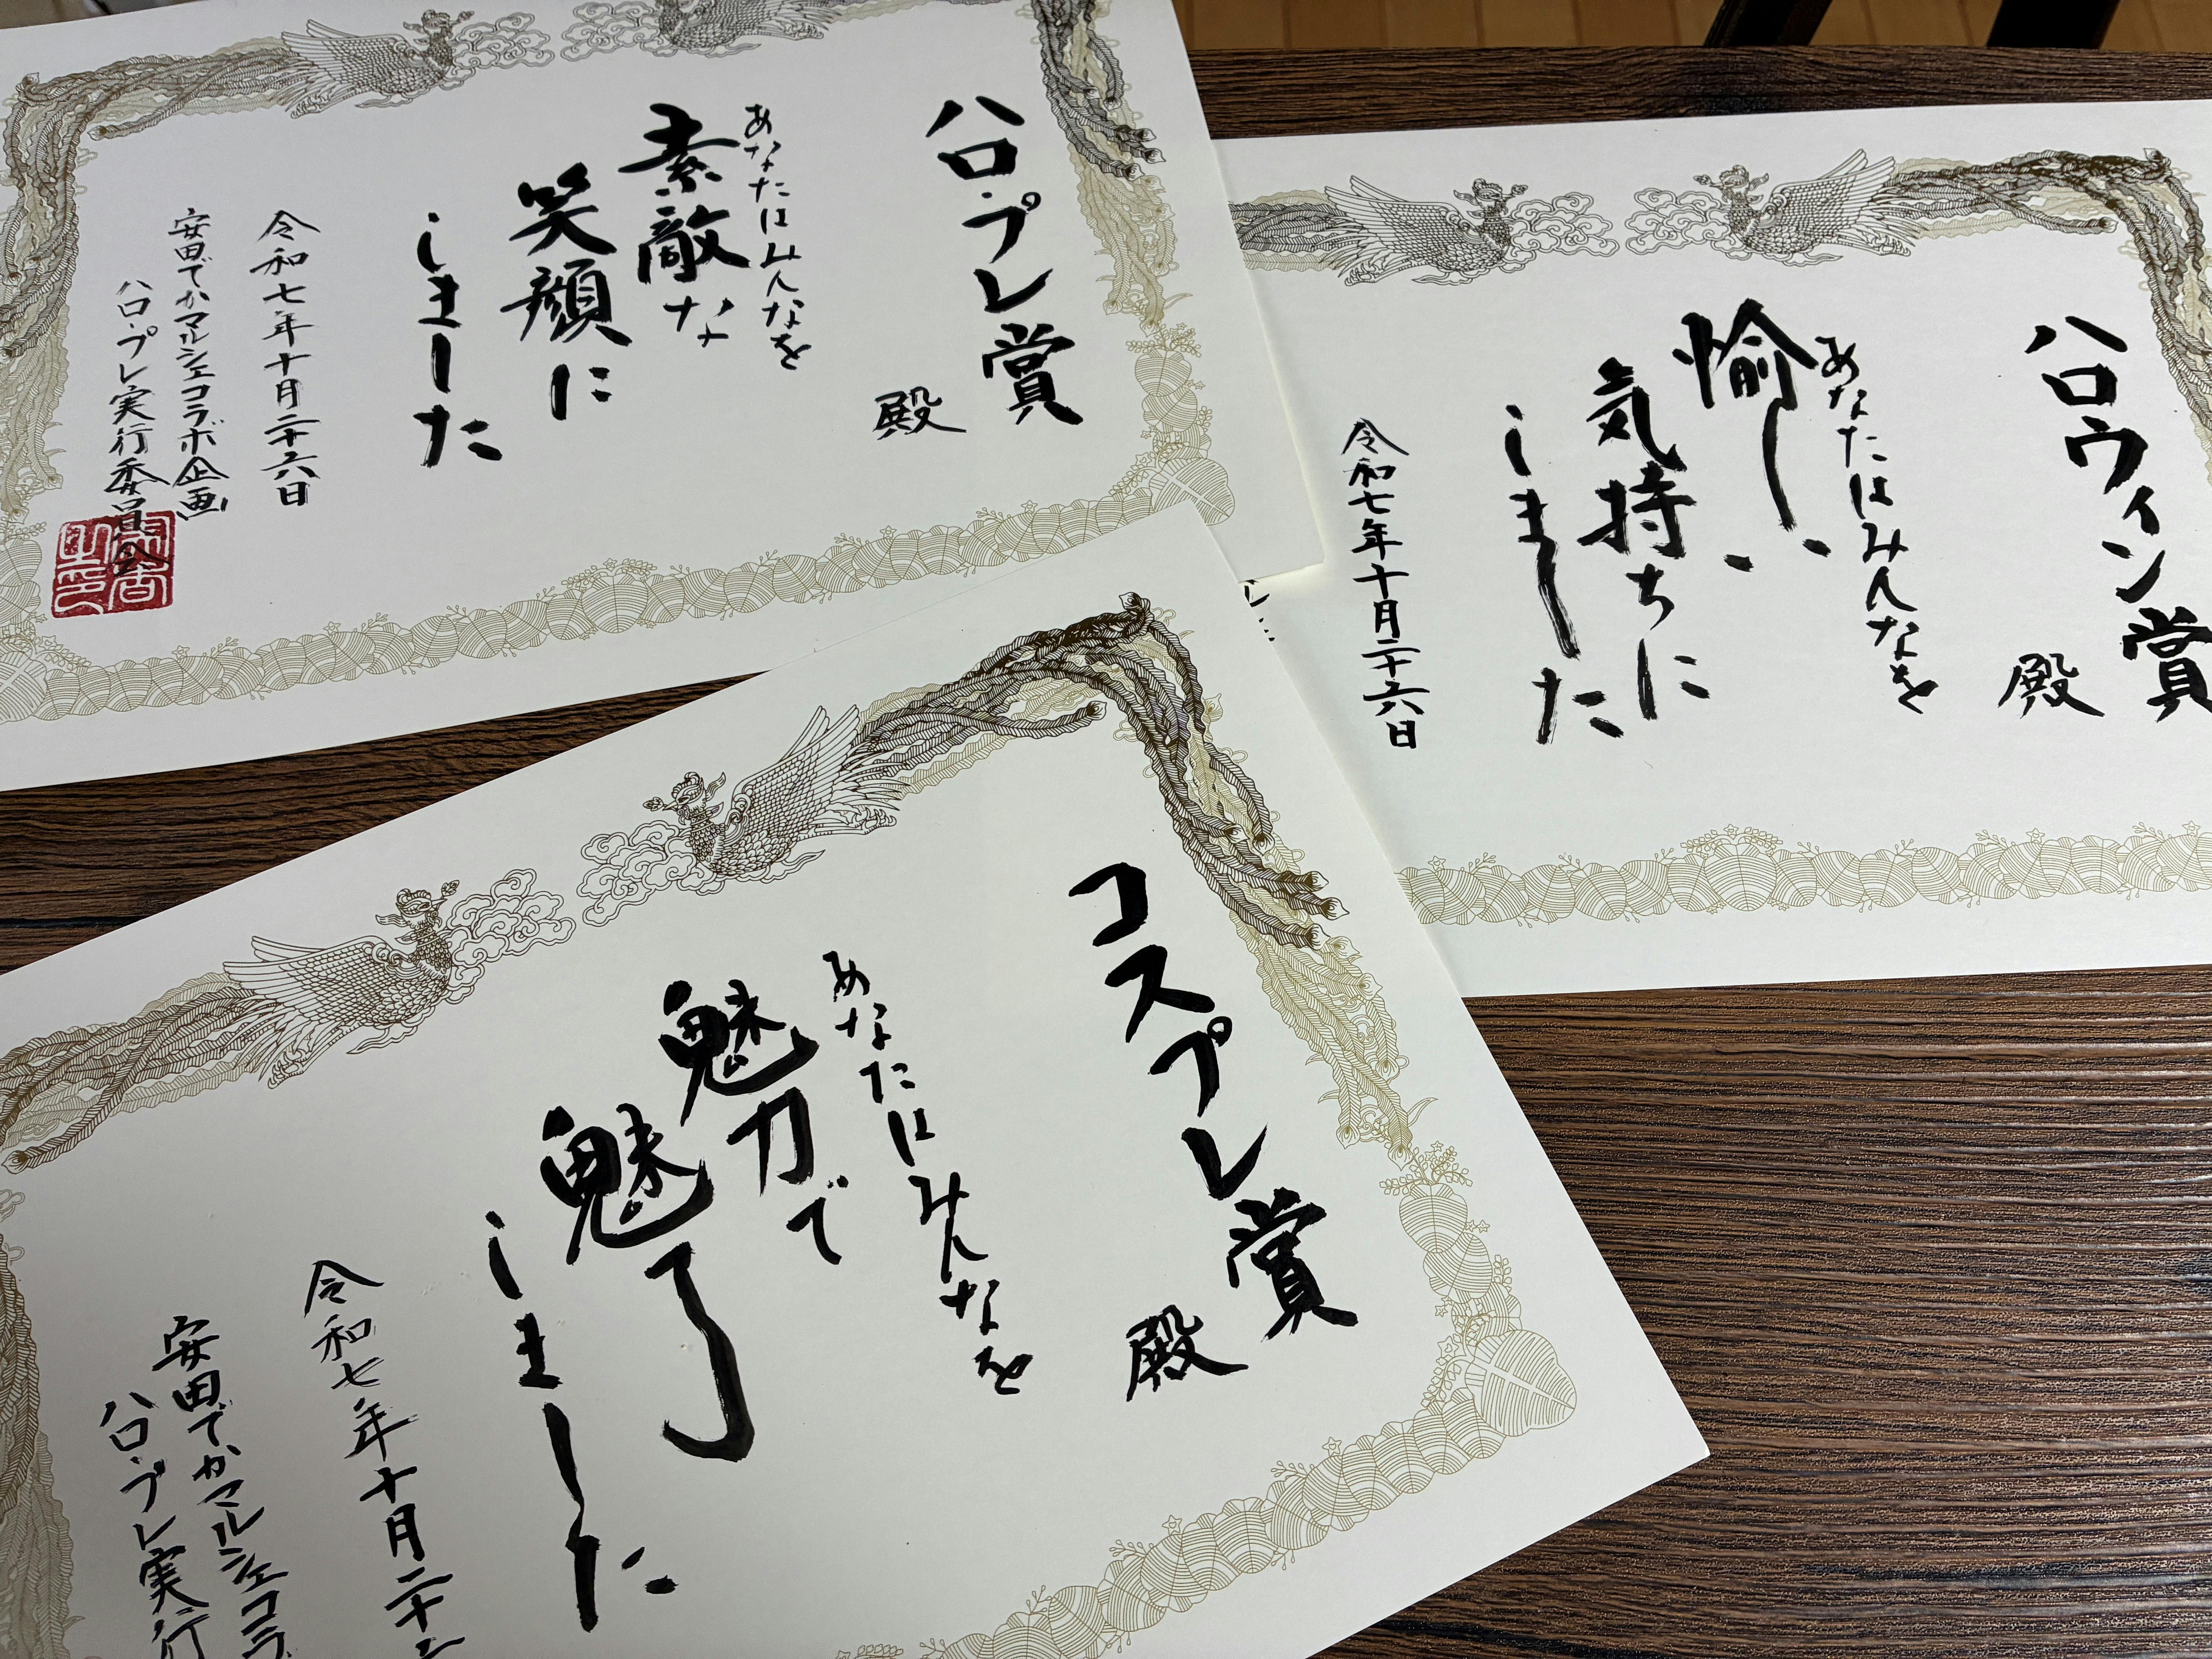 ハロ・プレ賞
殿
あなたはみんなを
素敵な
笑顔に
しました
令和七年十月二十六日
安田でかマルシェコラボ企画
ハロ・プレ実行委員会
ハロウィン賞
殿
あなたはみんなを
愉しい
気持ちに
しました
令和七年十月二十六日
コスプレ賞
殿
あなたはみんなを
魅力で
魅了
しました
令和七年十月二十
安田でかマルシェコラ
ハロ・プレ実行